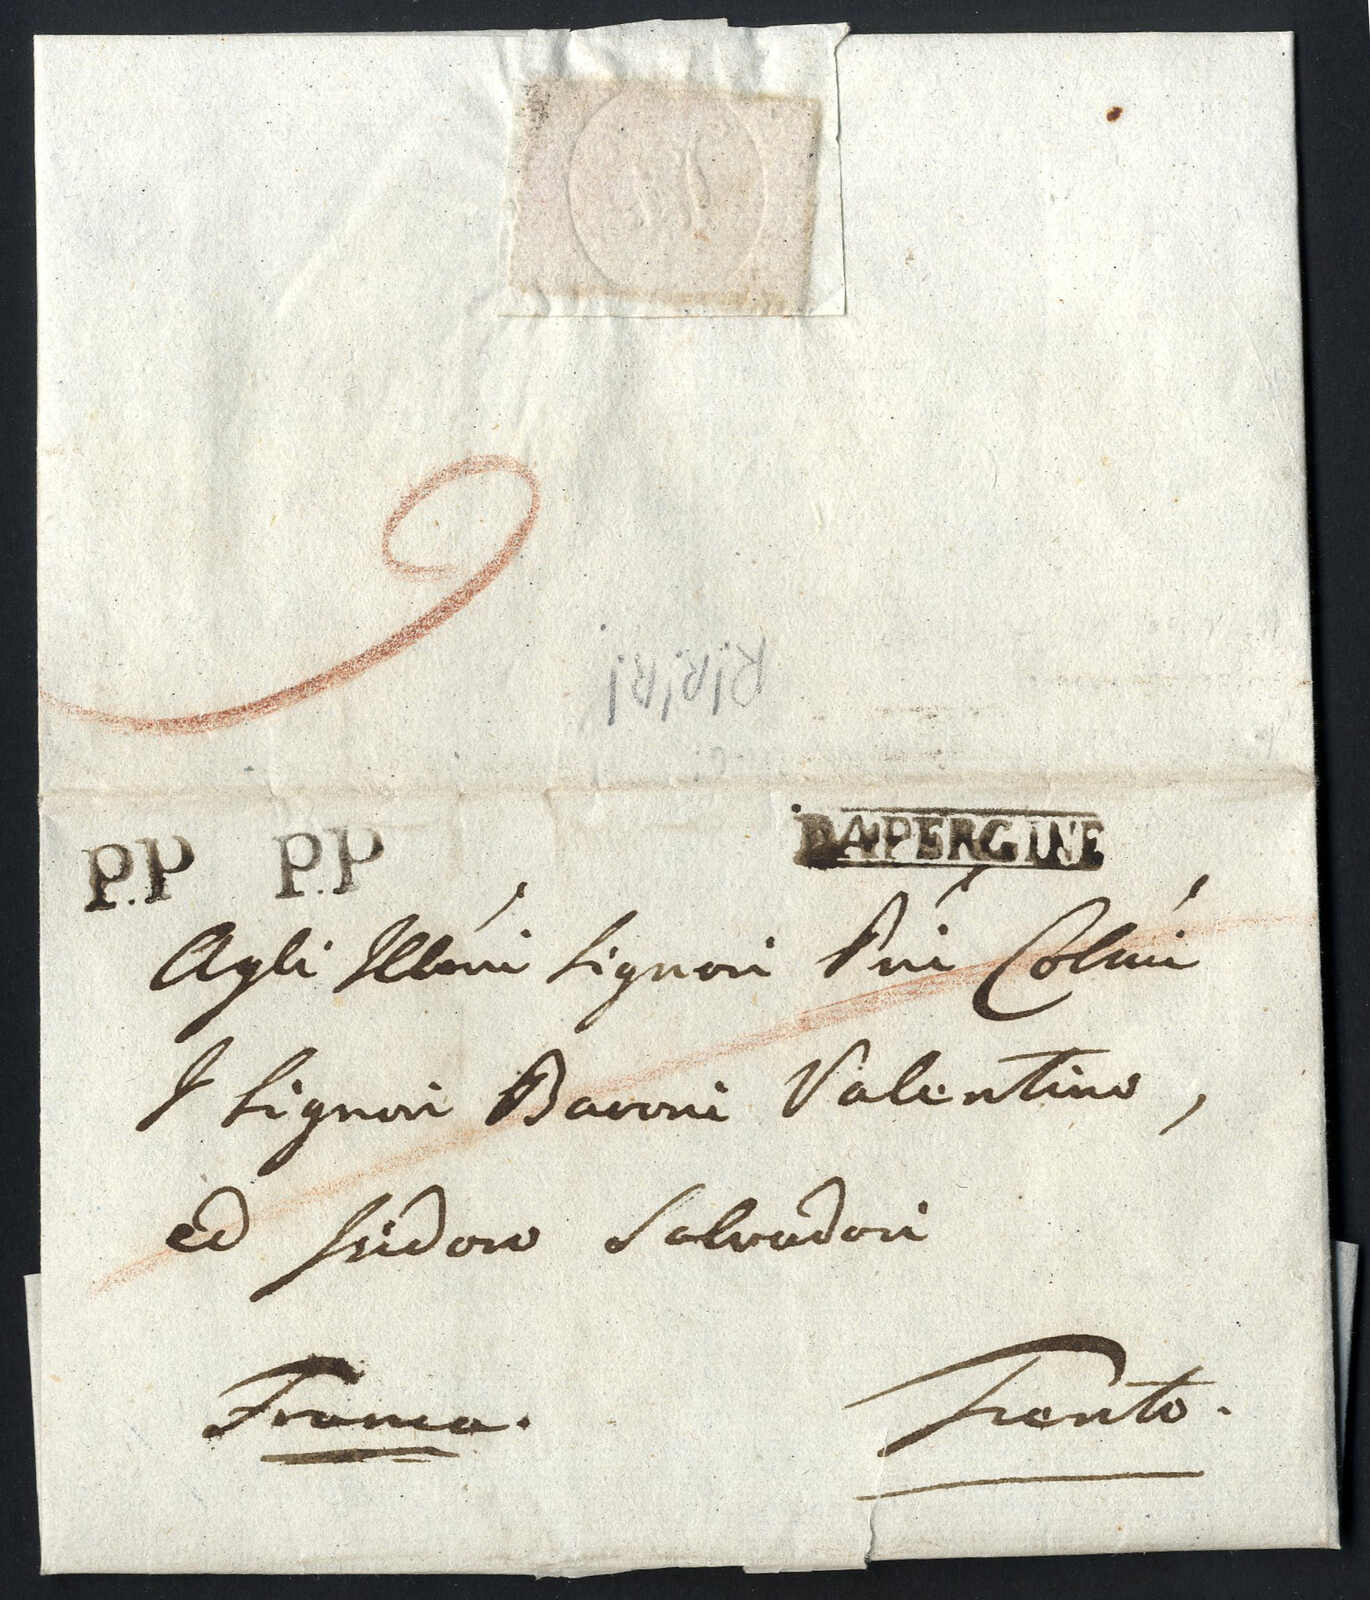 R!R!R!
P.P. P.P.
DA PERGINE
Agli Illmi Signori Pni Colmi
I Signori Baroni Valentino,
ed Isidoro Salvadori
Franca.
Trento.